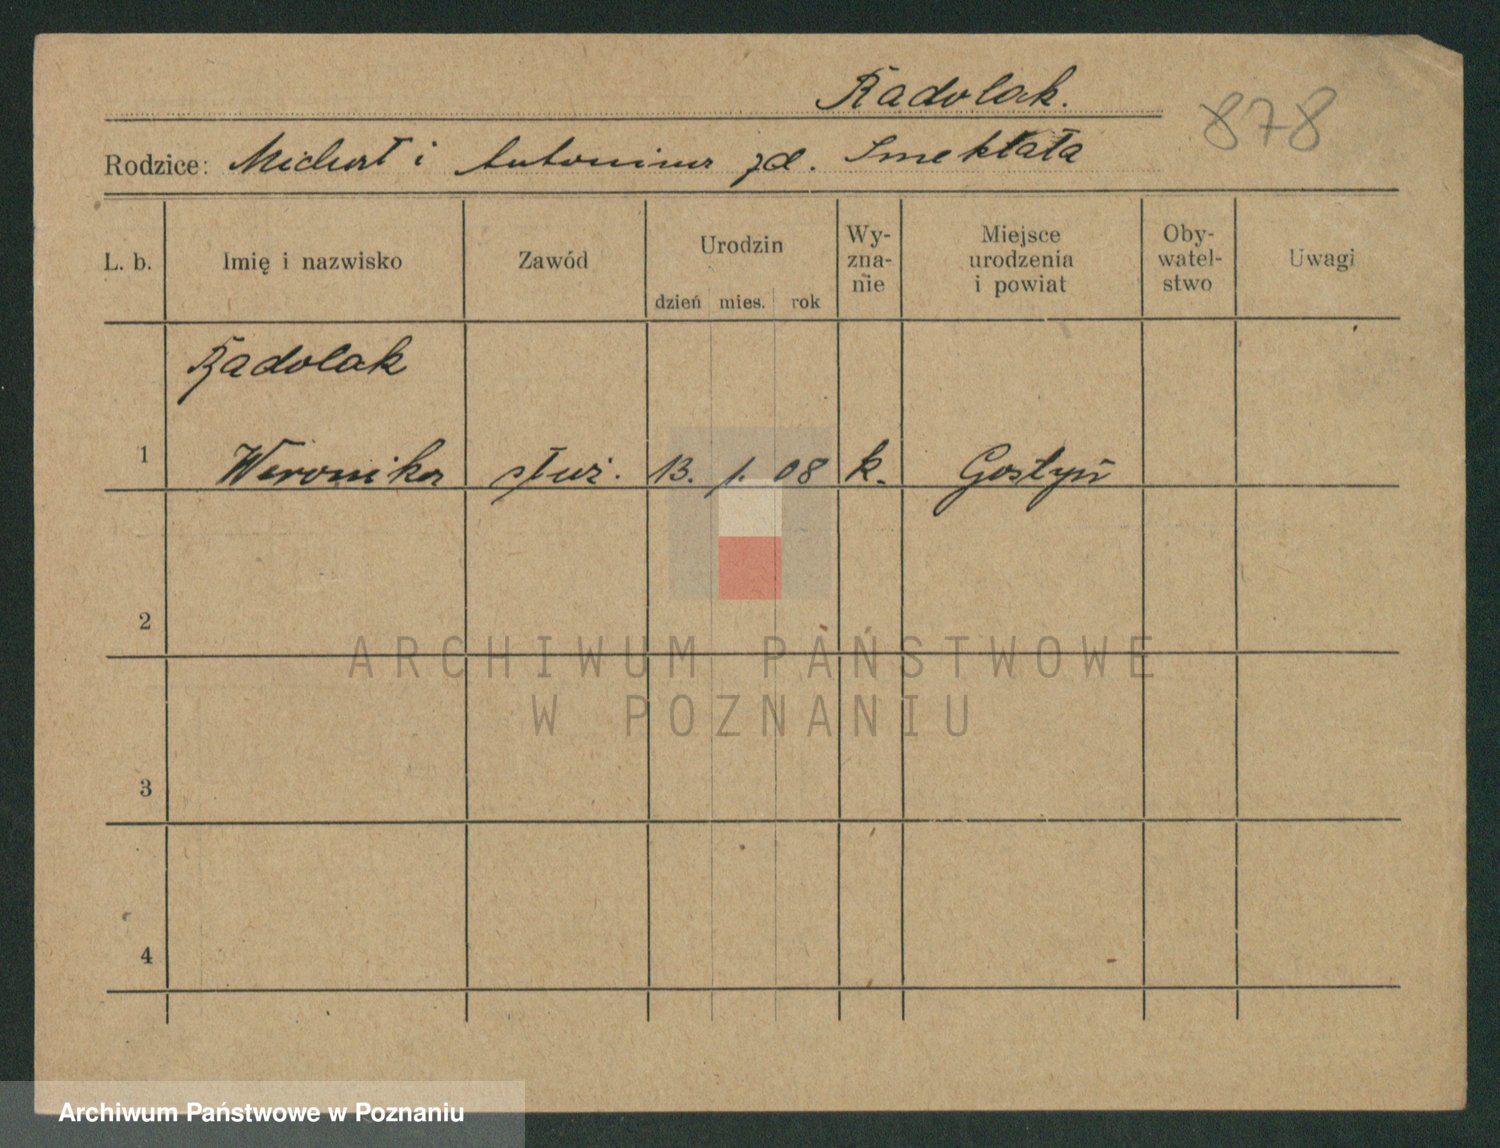 Radolak.
878
Rodzice: Michał i Antonina zd. Smektała
L. b. Imię i nazwisko Zawód Urodzin dzień mies. rok Wy-zna-nie Miejsce urodzenia i powiat Oby-watel-stwo Uwagi
Radolak
1 Weronika służ. 13. 1. 08 k. Gostyń
2
ARCHIWUM PAŃSTWOWE
W POZNANIU
3
4
Archiwum Państwowe w Poznaniu